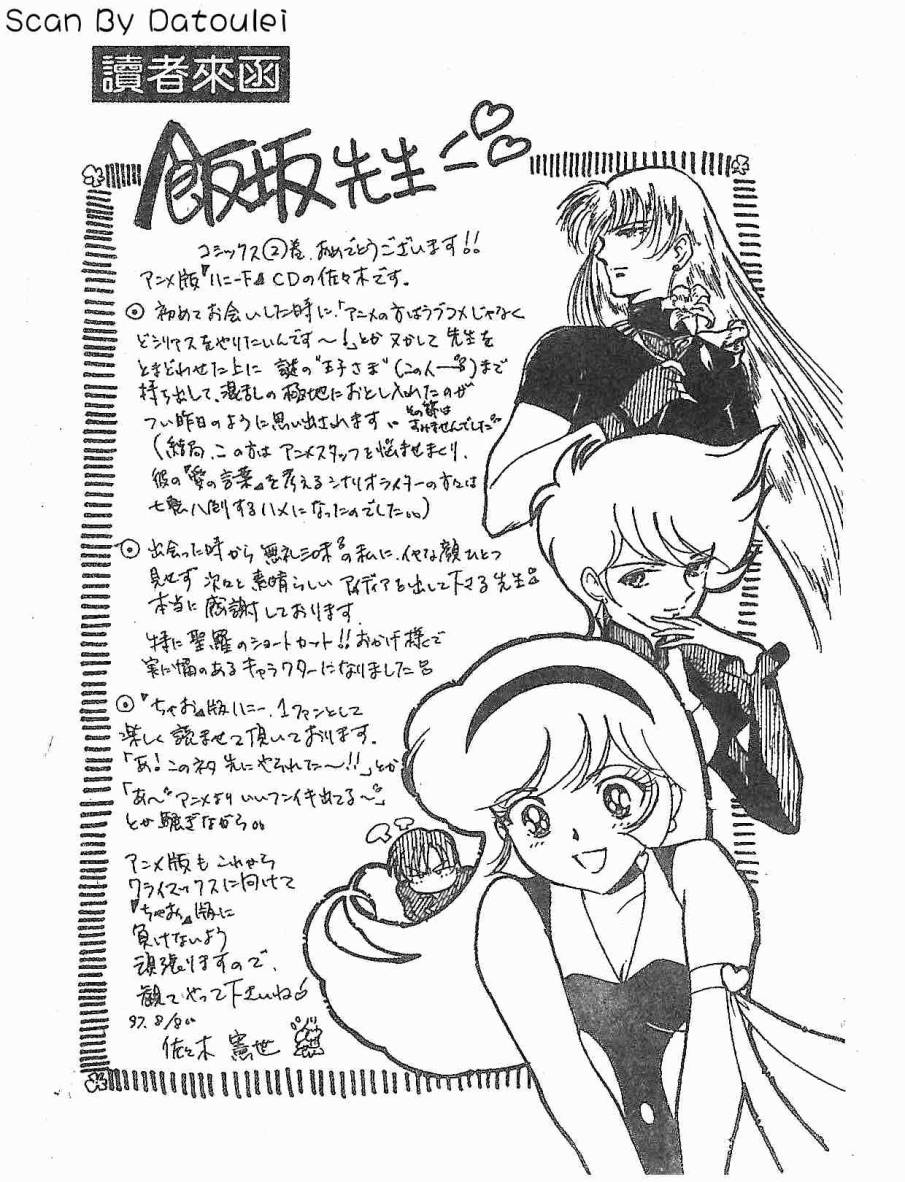 Scan By Datoulei
讀者來函
飯坂先生
コミックス②巻、おめでとうございます!!
アニメ版『ハニーF』CDの佐々木です。
初めてお会いした時に、「アニメの方はラブコメじゃなく
どシリアスをやりたいんです〜!」とかヌかして先生を
とまどわせた上に謎の"王子さま"(この人→)まで
持ち出して、混乱の極地におとし入れたのが
つい昨日のように思い出されます
その節は
すみませんでした
(結局、この方はアニメスタッフを悩ませまくり、
彼の『愛の言葉』を考えるシナリオライターの方々は
七転八倒するハメになったのでした。。)
出会った時から無礼三昧の私に、イヤな顔ひとつ
見せず次々と素晴らしいアイディアを出して下さる先生
本当に感謝しております
特に聖羅のショートカット!!おかげ様で
実に幅のあるキャラクターになりました
『ちゃお』版ハニー、1ファンとして
楽しく読ませて頂いております。
「あ!このネタ先にやられた〜!!」とか
「あ〜アニメよりいいフンイキ出てる〜」
とか騒ぎながら。。
アニメ版もこれから
クライマックスに向けて
『ちゃお』版に
負けないよう
頑張りますので、
観てやって下さいね
97.8/8
佐々木憲世